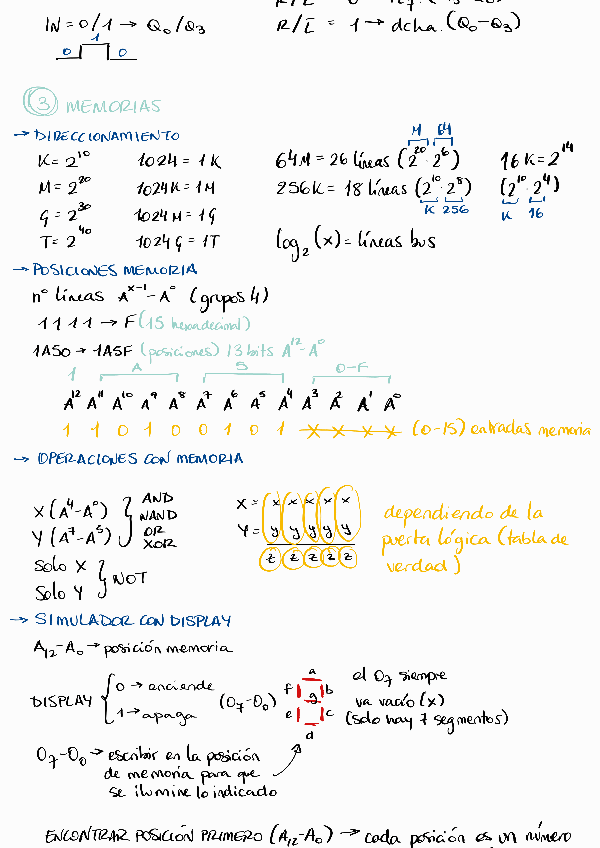 IN = 0/1 → Q₀/Q₃
R/L̅ = 1 → dcha. (Q₀-Q₃)
0 1 0
③ MEMORIAS
→ DIRECCIONAMIENTO
M 64
K = 2¹⁰ 1024 = 1K 64M = 26 líneas (2²⁰ · 2⁶) 16K = 2¹⁴
M = 2²⁰ 1024K = 1M 256K = 18 líneas (2¹⁰ · 2⁸) (2¹⁰ · 2⁴)
K 256 K 16
G = 2³⁰ 1024M = 1G
T = 2⁴⁰ 1024G = 1T log₂(x) = líneas bus
→ POSICIONES MEMORIA
nº líneas Aˣ⁻¹-A⁰ (grupos 4)
1111 → F (15 hexadecimal)
1A50 → 1A5F (posiciones) 13 bits A¹²-A⁰
1 A 5 0-F
A¹² A¹¹ A¹⁰ A⁹ A⁸ A⁷ A⁶ A⁵ A⁴ A³ A² A¹ A⁰
1 1 0 1 0 0 1 0 1 X X X X (0-15) entradas memoria
→ OPERACIONES CON MEMORIA
X (A⁴-A⁰)
Y (A⁷-A⁵)
AND
NAND
OR
XOR
Solo X
Solo Y
NOT
X = x x x x x
Y = y y y y y
z z z z z
dependiendo de la
puerta lógica (tabla de
verdad)
→ SIMULADOR CON DISPLAY
A₁₂-A₀ → posición memoria
DISPLAY
0 → enciende
1 → apaga
(O₇-O₀)
a
f g b
e c
d
el O₇ siempre
va vacío (x)
(solo hay 7 segmentos)
O₇-O₀ → escribir en la posición
de memoria para que
se ilumine lo indicado
ENCONTRAR POSICIÓN PRIMERO (A₁₂-A₀) → cada posición es un número